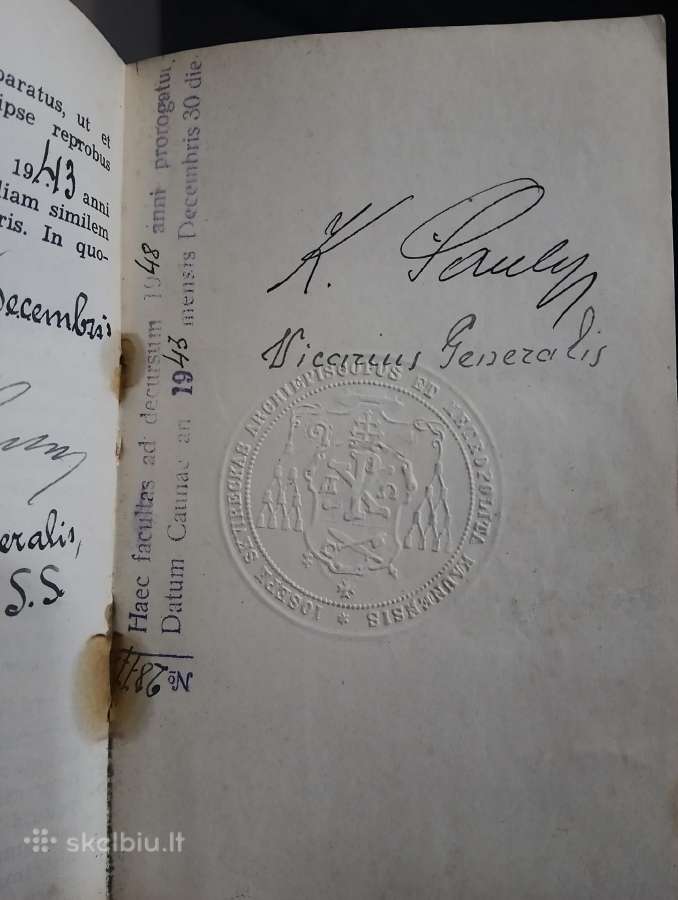 paratus, ut et
ipse reprobus
1943 anni
liam similem
ris. In quo-
Decembris
eralis,
S.S.
Haec facultas ad decursum 1948 anni prorogatur.
Datum Caunae an 1943 mensis Decembris 30 die
№
K. Pauly
Vicarius Generalis
IOSEPH SKVIRECKAS ARCHIEPISCOPUS ET METROPOLITA KAUNENSIS
skelbiu.lt